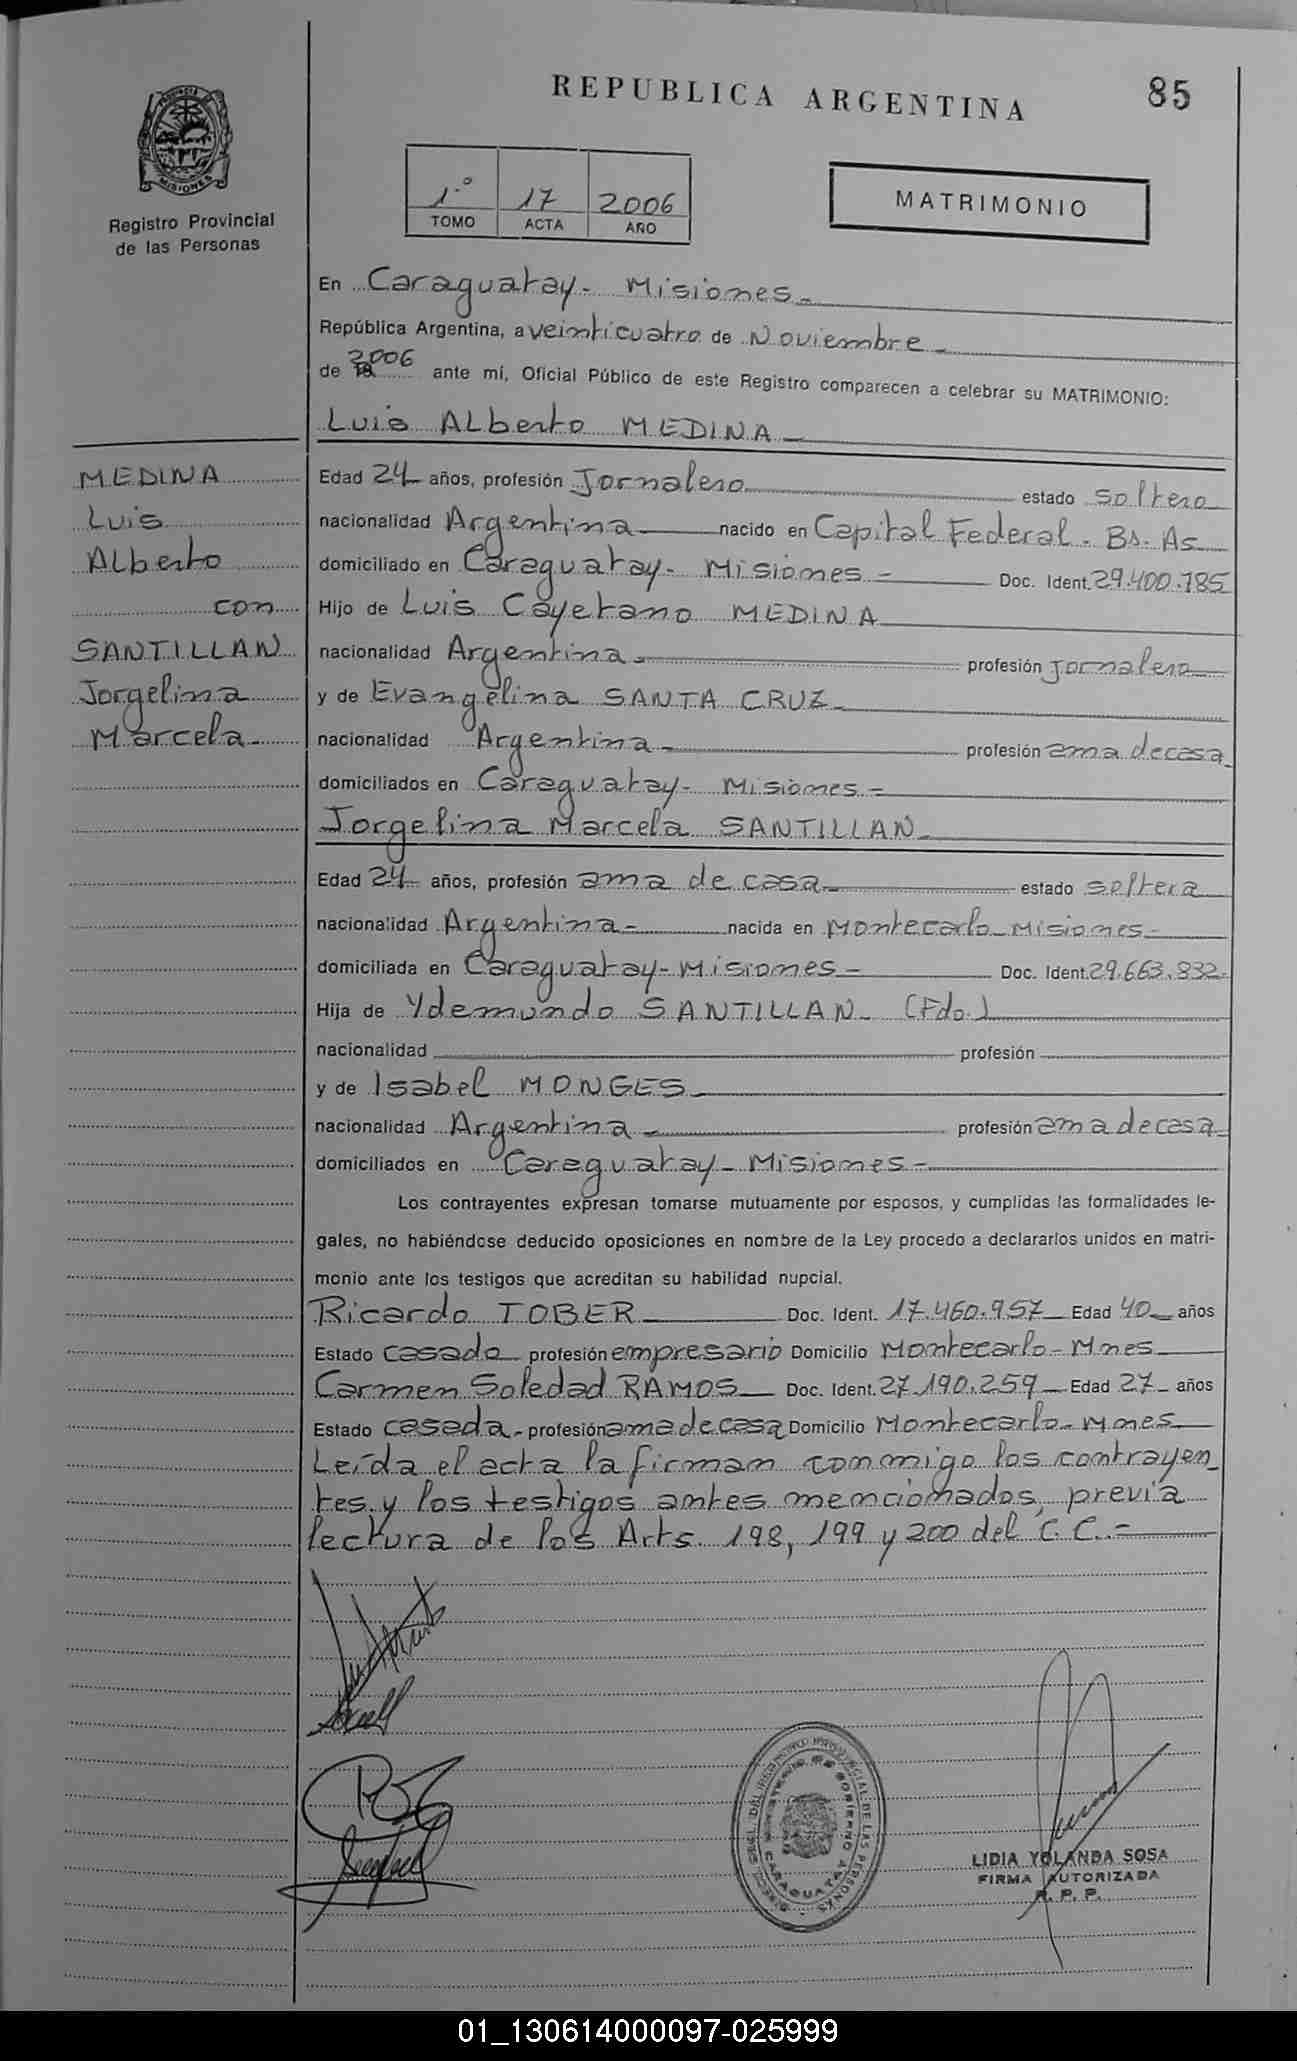 REPUBLICA ARGENTINA
85
PROVINCIA DE
MISIONES
Registro Provincial
de las Personas
1.º 17 2006
TOMO ACTA AÑO
MATRIMONIO
En Caraguatay - Misiones -
República Argentina, a veinticuatro de Noviembre -
de 2006 ante mí, Oficial Público de este Registro comparecen a celebrar su MATRIMONIO:
Luis Alberto MEDINA -
MEDINA
Luis
Alberto
con
SANTILLAN
Jorgelina
Marcela -
Edad 24 años, profesión Jornalero estado soltero
nacionalidad Argentina nacido en Capital Federal - Bs. As
domiciliado en Caraguatay - Misiones - Doc. Ident. 29.400.785
Hijo de Luis Cayetano MEDINA
nacionalidad Argentina - profesión jornalero
y de Evangelina SANTA CRUZ -
nacionalidad Argentina - profesión ama de casa
domiciliados en Caraguatay - Misiones -
Jorgelina Marcela SANTILLAN -
Edad 24 años, profesión ama de casa - estado soltera
nacionalidad Argentina - nacida en Montecarlo - Misiones -
domiciliada en Caraguatay - Misiones - Doc. Ident. 29.663.832.
Hija de Ydemundo SANTILLAN - (Fdo.)
nacionalidad profesión
y de Isabel MONGES -
nacionalidad Argentina - profesión ama de casa -
domiciliados en Caraguatay - Misiones -
Los contrayentes expresan tomarse mutuamente por esposos, y cumplidas las formalidades le-
gales, no habiéndose deducido oposiciones en nombre de la Ley procedo a declararlos unidos en matri-
monio ante los testigos que acreditan su habilidad nupcial.
Ricardo TOBER Doc. Ident. 17.460.957 Edad 40 años
Estado casado profesión empresario Domicilio Montecarlo - Mnes
Carmen Soledad RAMOS Doc. Ident. 27.190.259 Edad 27 años
Estado casada - profesión ama de casa Domicilio Montecarlo - Mnes
Leída el acta la firman conmigo los contrayen_
tes y los testigos antes mencionados, previa
lectura de los Arts. 198, 199 y 200 del C.C. -
MINISTERIO DE GOBIERNO
CARAGUATAY
LIDIA YOLANDA SOSA
FIRMA AUTORIZADA
R. P. P.
01_130614000097-025999